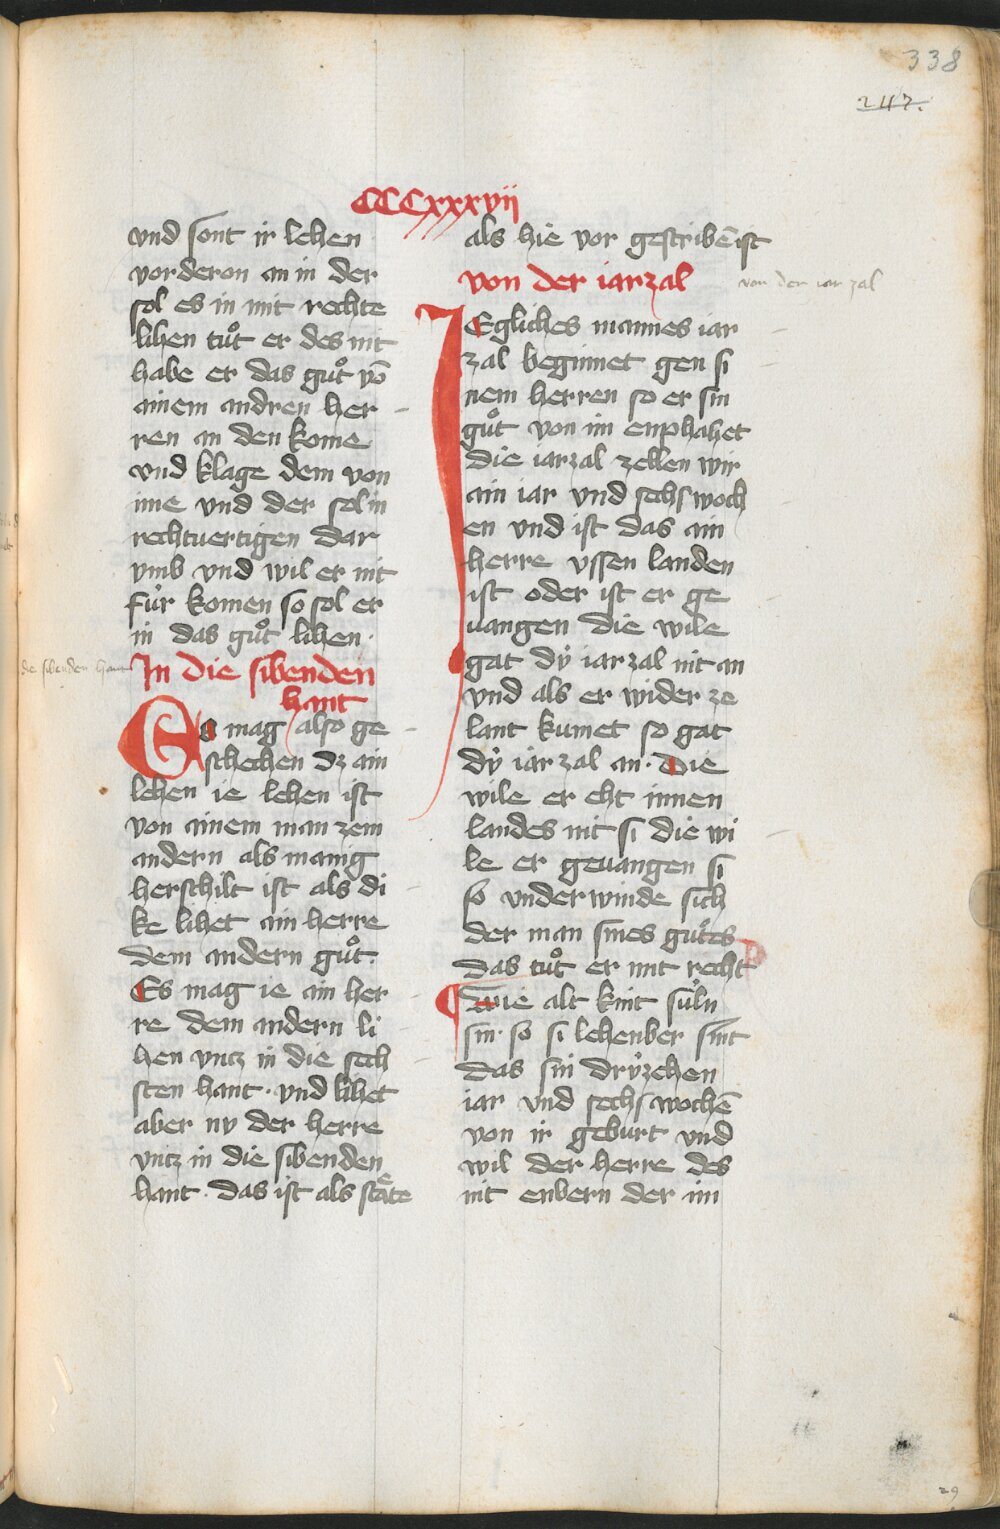 338
247.
CCCxxxvii
vnd sont ir lehen
vorderon an in der
sol es in mit rechte
lihen tuͦt er des nit
habe er das guͦt vō
ainem andren her
ren an den kome
vnd klage dem von
ime vnd der sol in
rechtuertigen dar
vmb vnd wil er nit
fúr komen so sol er
in das guͦt lihen·
die sibenden hant
In die sibenden
hant
Es mag also ge
schechen dz ain
lehen ie lehen ist
von ainem man zem
andern als manig
herschilt ist als di
ke lihet ain herre
dem andern guͦt·
Es mag ie ain her
re dem andern li
hen vntz in die sech
sten hant· vnd lihet
aber nv der herre
vntz in die sibenden
hant· das ist als staͤte
als hie vor gescribē ist
von der iarzal
von der iar zal
IEgliches mannes iar
zal beginnet gen si
nem herren so er sin
guͦt von im enphahet
die iarzal zellen wir
ain iar vnd sechs woch
en vnd ist das ain
herre vssen landen
ist oder ist er ge
uangen die wile
gat dẏ iarzal nit an
vnd als er wider ze
lant kumet so gat
dẏ iar zal an· Die
wile er eht innen
landes nit si die wi
le er geuangen si
so vnderwinde sich
der man sines guͦtes
das tuͦt er mit recht
¶ Wie alt kint súln
sin· so si lehenber sint
das sin drẏzehen
iar vnd sechs wochē
von ir geburt vnd
wil der herre des
nit enbern der im
29